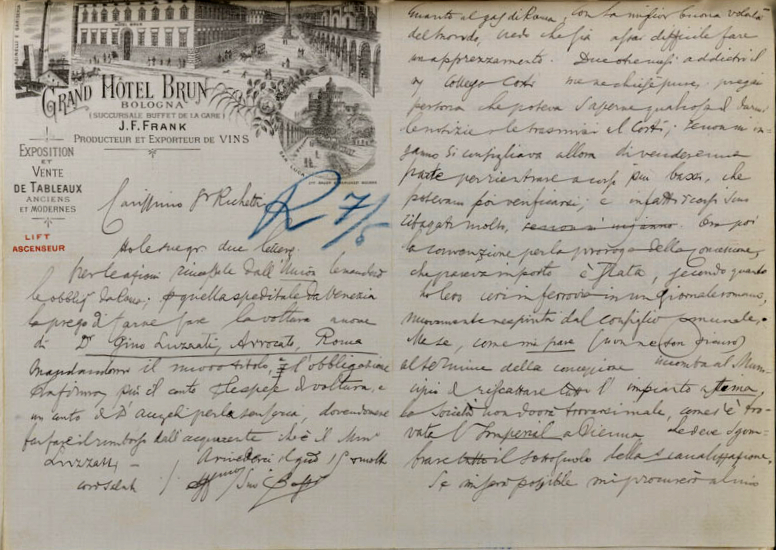 GRAND HÔTEL BRUN
BOLOGNA
(SUCCURSALE BUFFET DE LA GARE)
J. F. FRANK
PRODUCTEUR ET EXPORTEUR DE VINS
EXPOSITION
ET
VENTE
DE TABLEAUX
ANCIENS
ET MODERNES
LIFT
ASCENSEUR
R 7/5
Carissimo Sr Richetti
Ho le sue due lettere.
Per le azioni
le obblig da Roma; quella speditale da Venezia
la prego di farne fare la voltura a nome
di Dr Gino Luzzatti, Avvocato, Roma
mandandomi il nuovo titolo, l'obbligazione
più il conto spese di voltura, e
un conto di per la dovendomene
far fare il rimborso dall'acquirente che è il
Luzzatti
Arrivederci il 15 e molti
cordi saluti
Suo
Quanto al gas di Roma, con la miglior buona volontà
del mondo, vedo che già assai difficile fare
un apprezzamento. Due o tre mesi addietro il
collega Corti me ne chiese pure, pregai
persona che poteva saperne qualcosa di darmi
le notizie e le trasmisi al Corti; e non m'in-
ganno si consigliava allora di venderne una
parte per rientrare a corsi più bassi, che
potevano poi verificarsi; e infatti i corsi sono
ribassati molto, se non m'inganno. Ora poi
la convenzione per la proroga della concessione,
che pareva in porto è stata, secondo quanto
ho letto ieri in ferrovia in un giornale romano,
nuovamente respinta dal consiglio comunale.
Ma se, come mi pare (ma non ne son sicuro)
al termine della concessione incomba al Muni-
cipio di riscattare l'impianto a stima,
la Società non dovrà trovarsi male, come s'è tro-
vata l'Imperial a Vienna
il sottosuolo della canalizzazione.
Se mi sarà possibile mi procurerò al mio